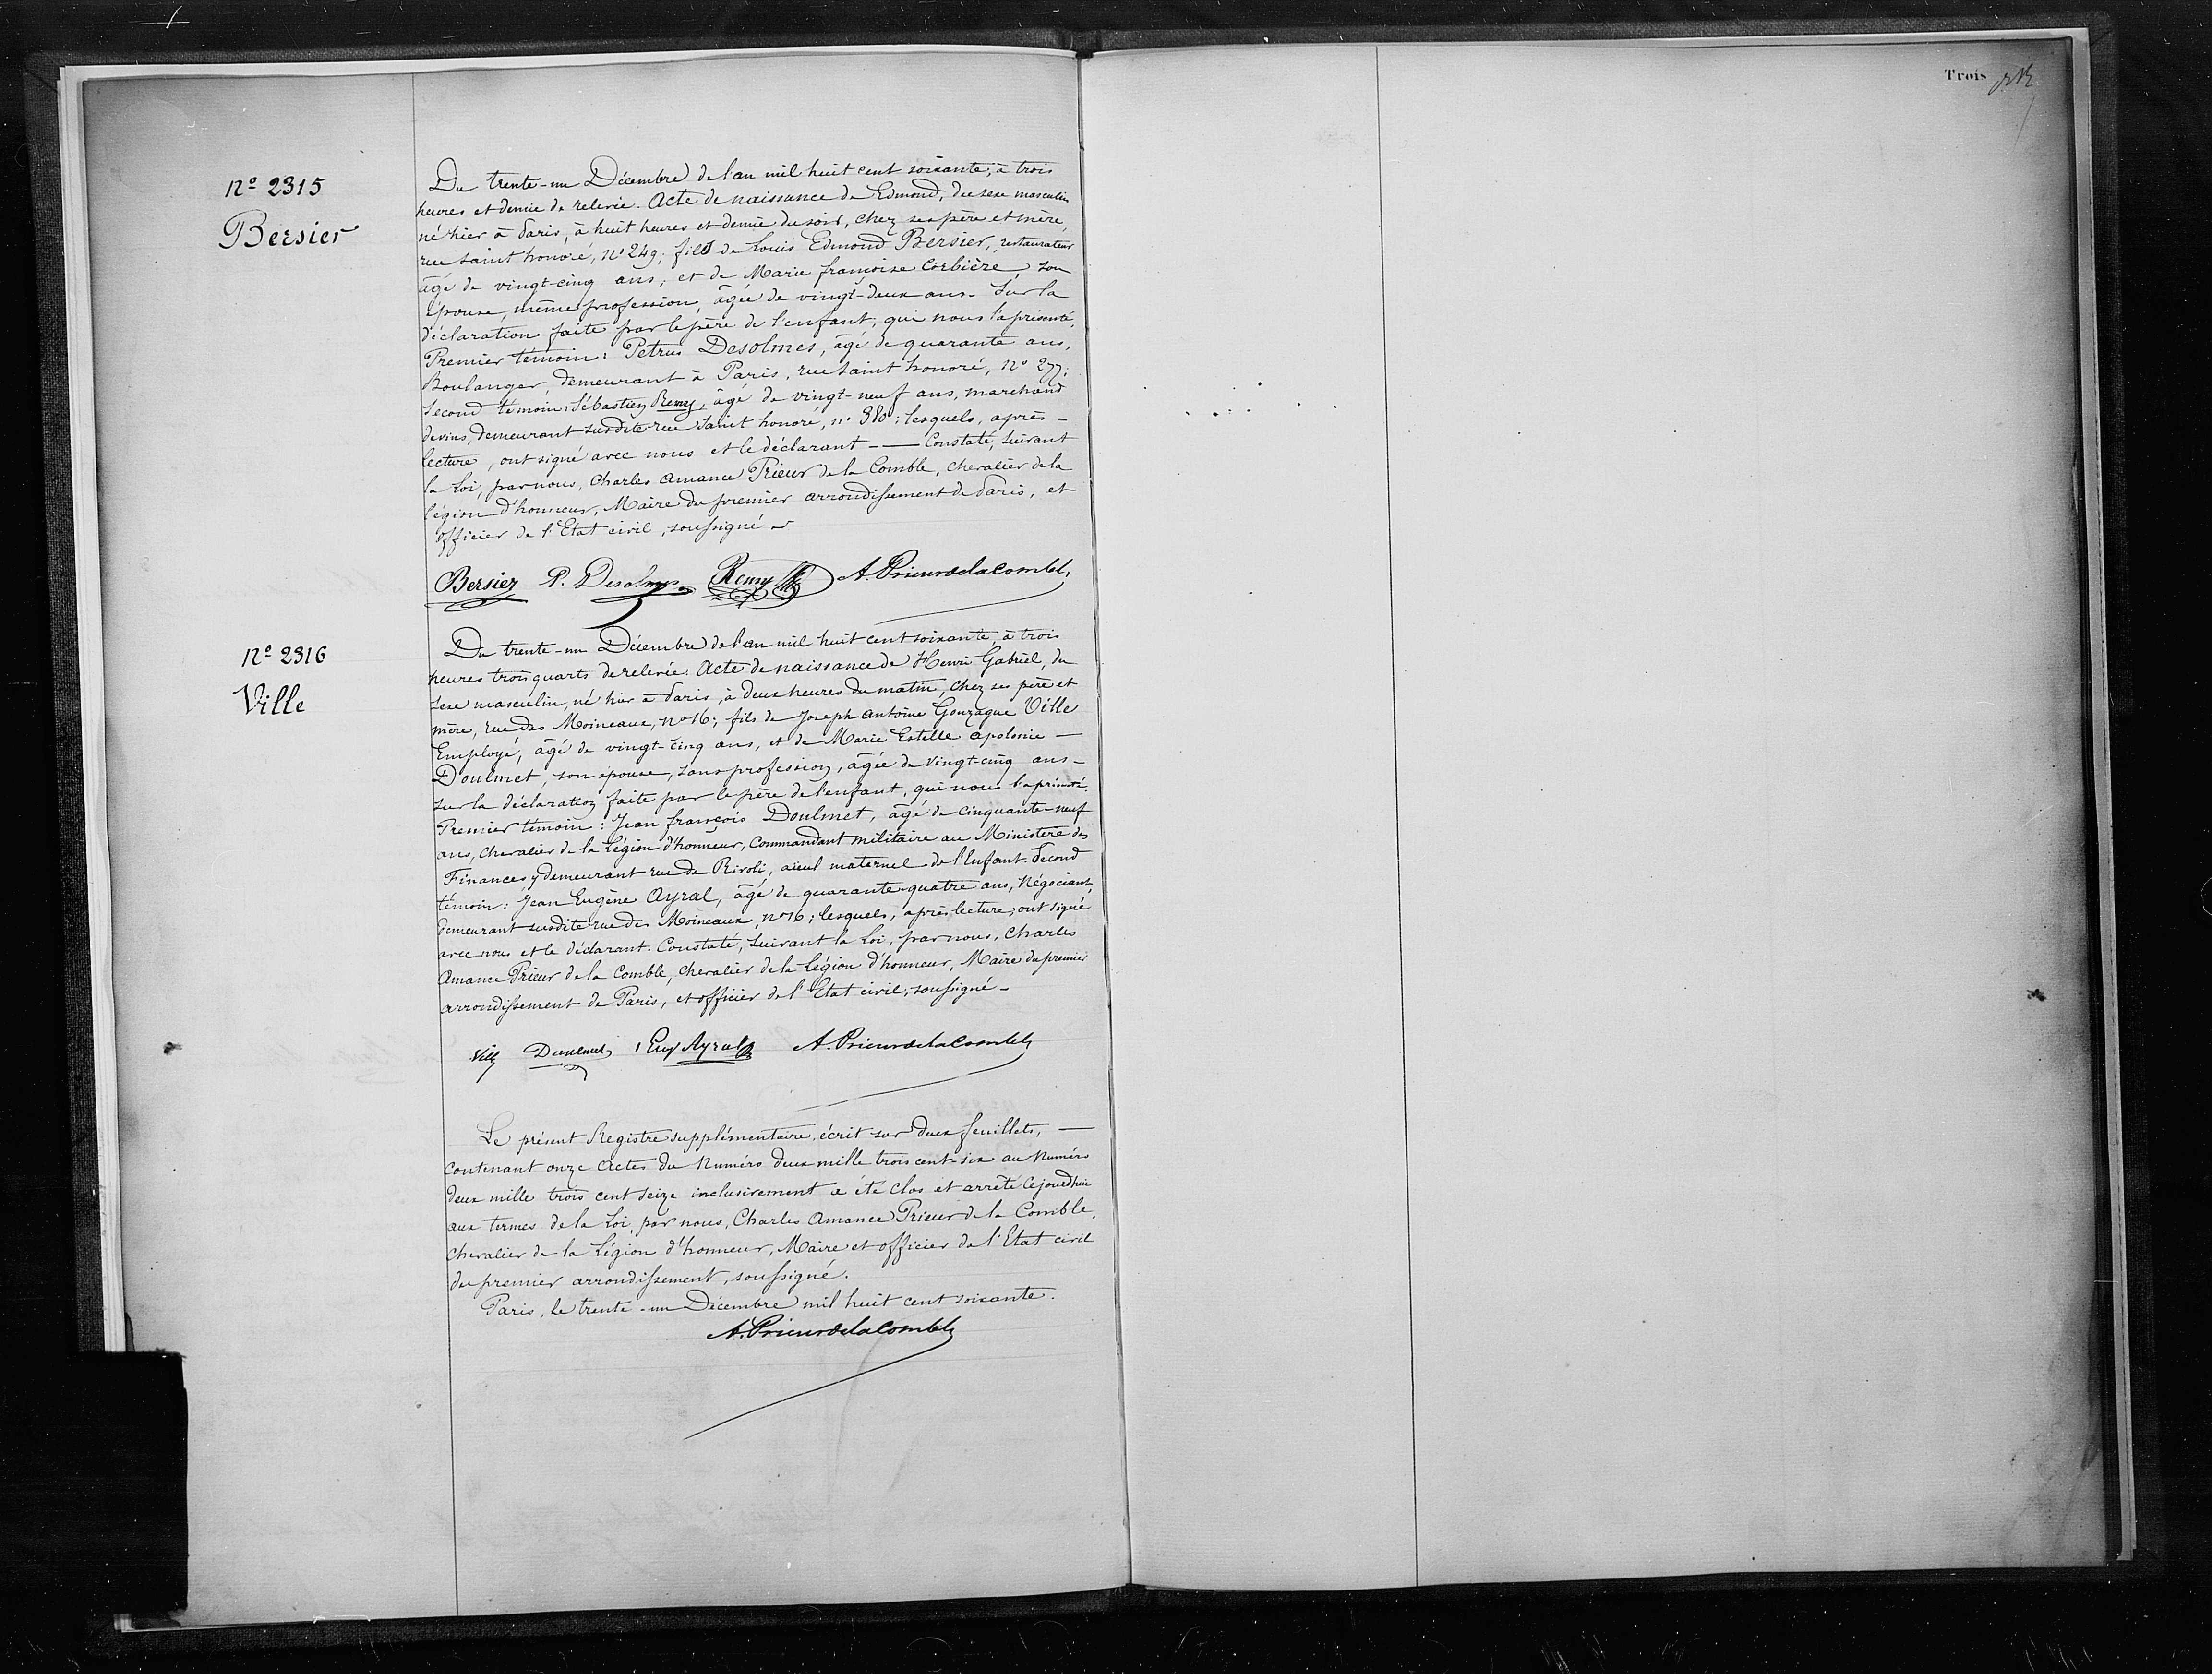 Trois
Nº 2315
Bersier
Du trente-un Décembre de l'an mil huit cent soixante, à trois
heures et demie de relevée. Acte de naissance de Edmond, du sexe masculin
né hier à Paris, à huit heures et demie du soir, chez ses père et mère,
rue Saint honoré, nº 249; fils de Louis Edmond Bersier, restaurateur
âgé de vingt-cinq ans; et de Marie françoise Corbière, son
épouse, même profession, âgée de vingt-deux ans. Sur la
déclaration faite par le père de l'enfant, qui nous l'a présenté,
Premier témoin: Petrus Desolmes, âgé de quarante ans,
Boulanger, demeurant à Paris, rue Saint honoré, nº 277;
Second témoin: Sébastien Remy, âgé de vingt-neuf ans, marchand
de vins, demeurant susdite rue Saint honoré, nº 380; lesquels, après -
lecture, ont signé avec nous et le déclarant - — Constaté, suivant
la Loi, par nous, Charles Amance Prieur de la Comble, chevalier de la
légion d'honneur, Maire du premier arrondissement de Paris, et
officier de l'Etat civil, soussigné -
Bersier P. Desolmes Remy A. Prieur de la Comble
Nº 2316
Ville
Du trente-un Décembre de l'an mil huit cent soixante, à trois
heures trois quarts de relevée. Acte de naissance de Henri Gabriel, du
sexe masculin, né hier à Paris, à deux heures du matin, chez ses père et
mère, rue des Moineaux, nº 16; fils de Joseph Antoine Gonzague Ville
Employé, âgé de vingt-cinq ans, et de Marie Estelle Apolonie —
Doulmet, son épouse, sans profession, âgée de vingt-cinq ans -
sur la déclaration faite par le père de l'enfant, qui nous l'a présenté.
Premier témoin: Jean françois Doulmet, âgé de cinquante-neuf
ans, chevalier de la Légion d'honneur, Commandant militaire au Ministère des
Finances y demeurant rue de Rivoli, aïeul maternel de l'Enfant. Second
témoin: Jean Eugène Ayral, âgé de quarante-quatre ans, Négociant,
demeurant susdite rue des Moineaux, nº 16; lesquels, après lecture, ont signé
avec nous et le déclarant. Constaté, suivant la Loi, par nous, Charles
Amance Prieur de la Comble, chevalier de la Légion d'honneur, Maire du premier
arrondissement de Paris, et officier de l'Etat civil, soussigné -
Ville Doulmet Eug Ayral A. Prieur de la Comble
Le présent Registre supplémentaire, écrit sur deux feuillets, —
contenant onze Actes du Numéro deux mille trois cent-six au Numéro
deux mille trois cent seize inclusivement a été clos et arrêté cejourd'hui
aux termes de la Loi, par nous, Charles Amance Prieur de la Comble,
chevalier de la Légion d'honneur, Maire et officier de l'Etat civil
du premier arrondissement, soussigné.
Paris, le trente-un Décembre mil huit cent soixante.
A. Prieur de la Comble